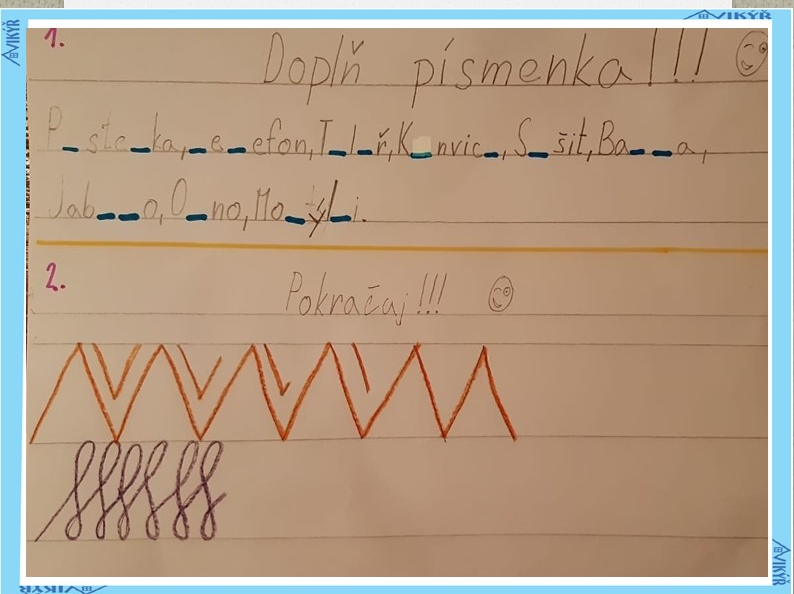 VIKÝŘ
VIKÝŘ
1.
Doplň písmenka!!!
P_stc_ka,_e_efon,T_l_ř,K_nvic_,S_šit,Ba__a,
Jab__o,O_no,Mo_ýl_i.
2.
Pokračaj!!!
VIKÝŘ
VIKÝŘ
VIKÝŘ